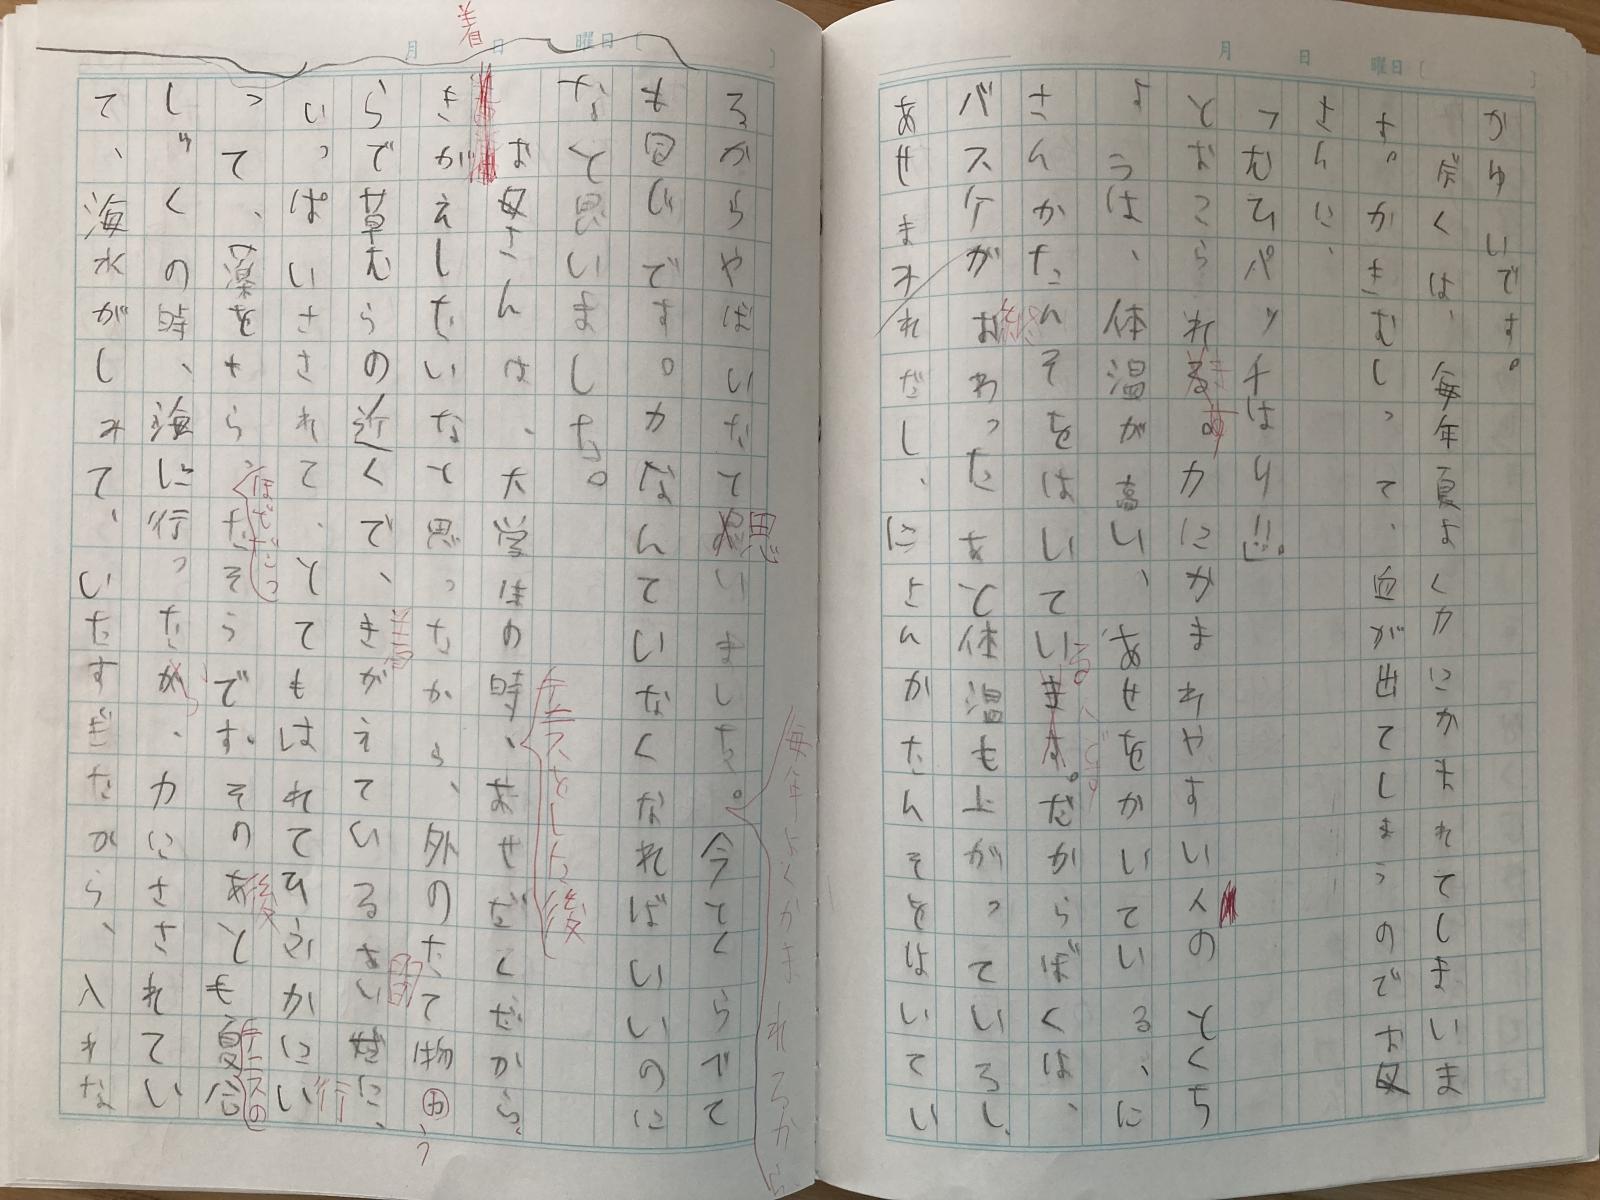 月 日 曜日〔 〕
かゆいです。
ぼくは、毎年夏よくカにかまれてしまいま
す。かきむしって、血が出てしまうのでお母
さんに、
つむひパッチはり‼」。
とおこられます。カにかまれやすい人のとくち
ょうは、体温が高い、あせをかいている、に
さんかたんそをはいている、です。だからぼくは、
バスケがおわったあと体温も上がっているし、
終
あせまみれだし、にさんかたんそをはいてい
月 日 曜日〔 〕
るからやばいなと思いました。今とくらべて
毎年よくかまれるから
も同じです。カなんていなくなればいいのに
なと思いました。
テニスをした後
お母さんは、大学生の時、あせだくだから、
着
きがえしたいなと思ったから、外のたて物のう
らで草むらの近くで、きがえているさい中に、
着
いっぱいさされて、とてもはれてひふかにい
行
って、薬をもらったそうです。そのあとも夏合
ほどだった
後
テニスの
しゅくの時、海に行ったが、カにさされてい
て、海水がしみて、いたすぎたから、入れな